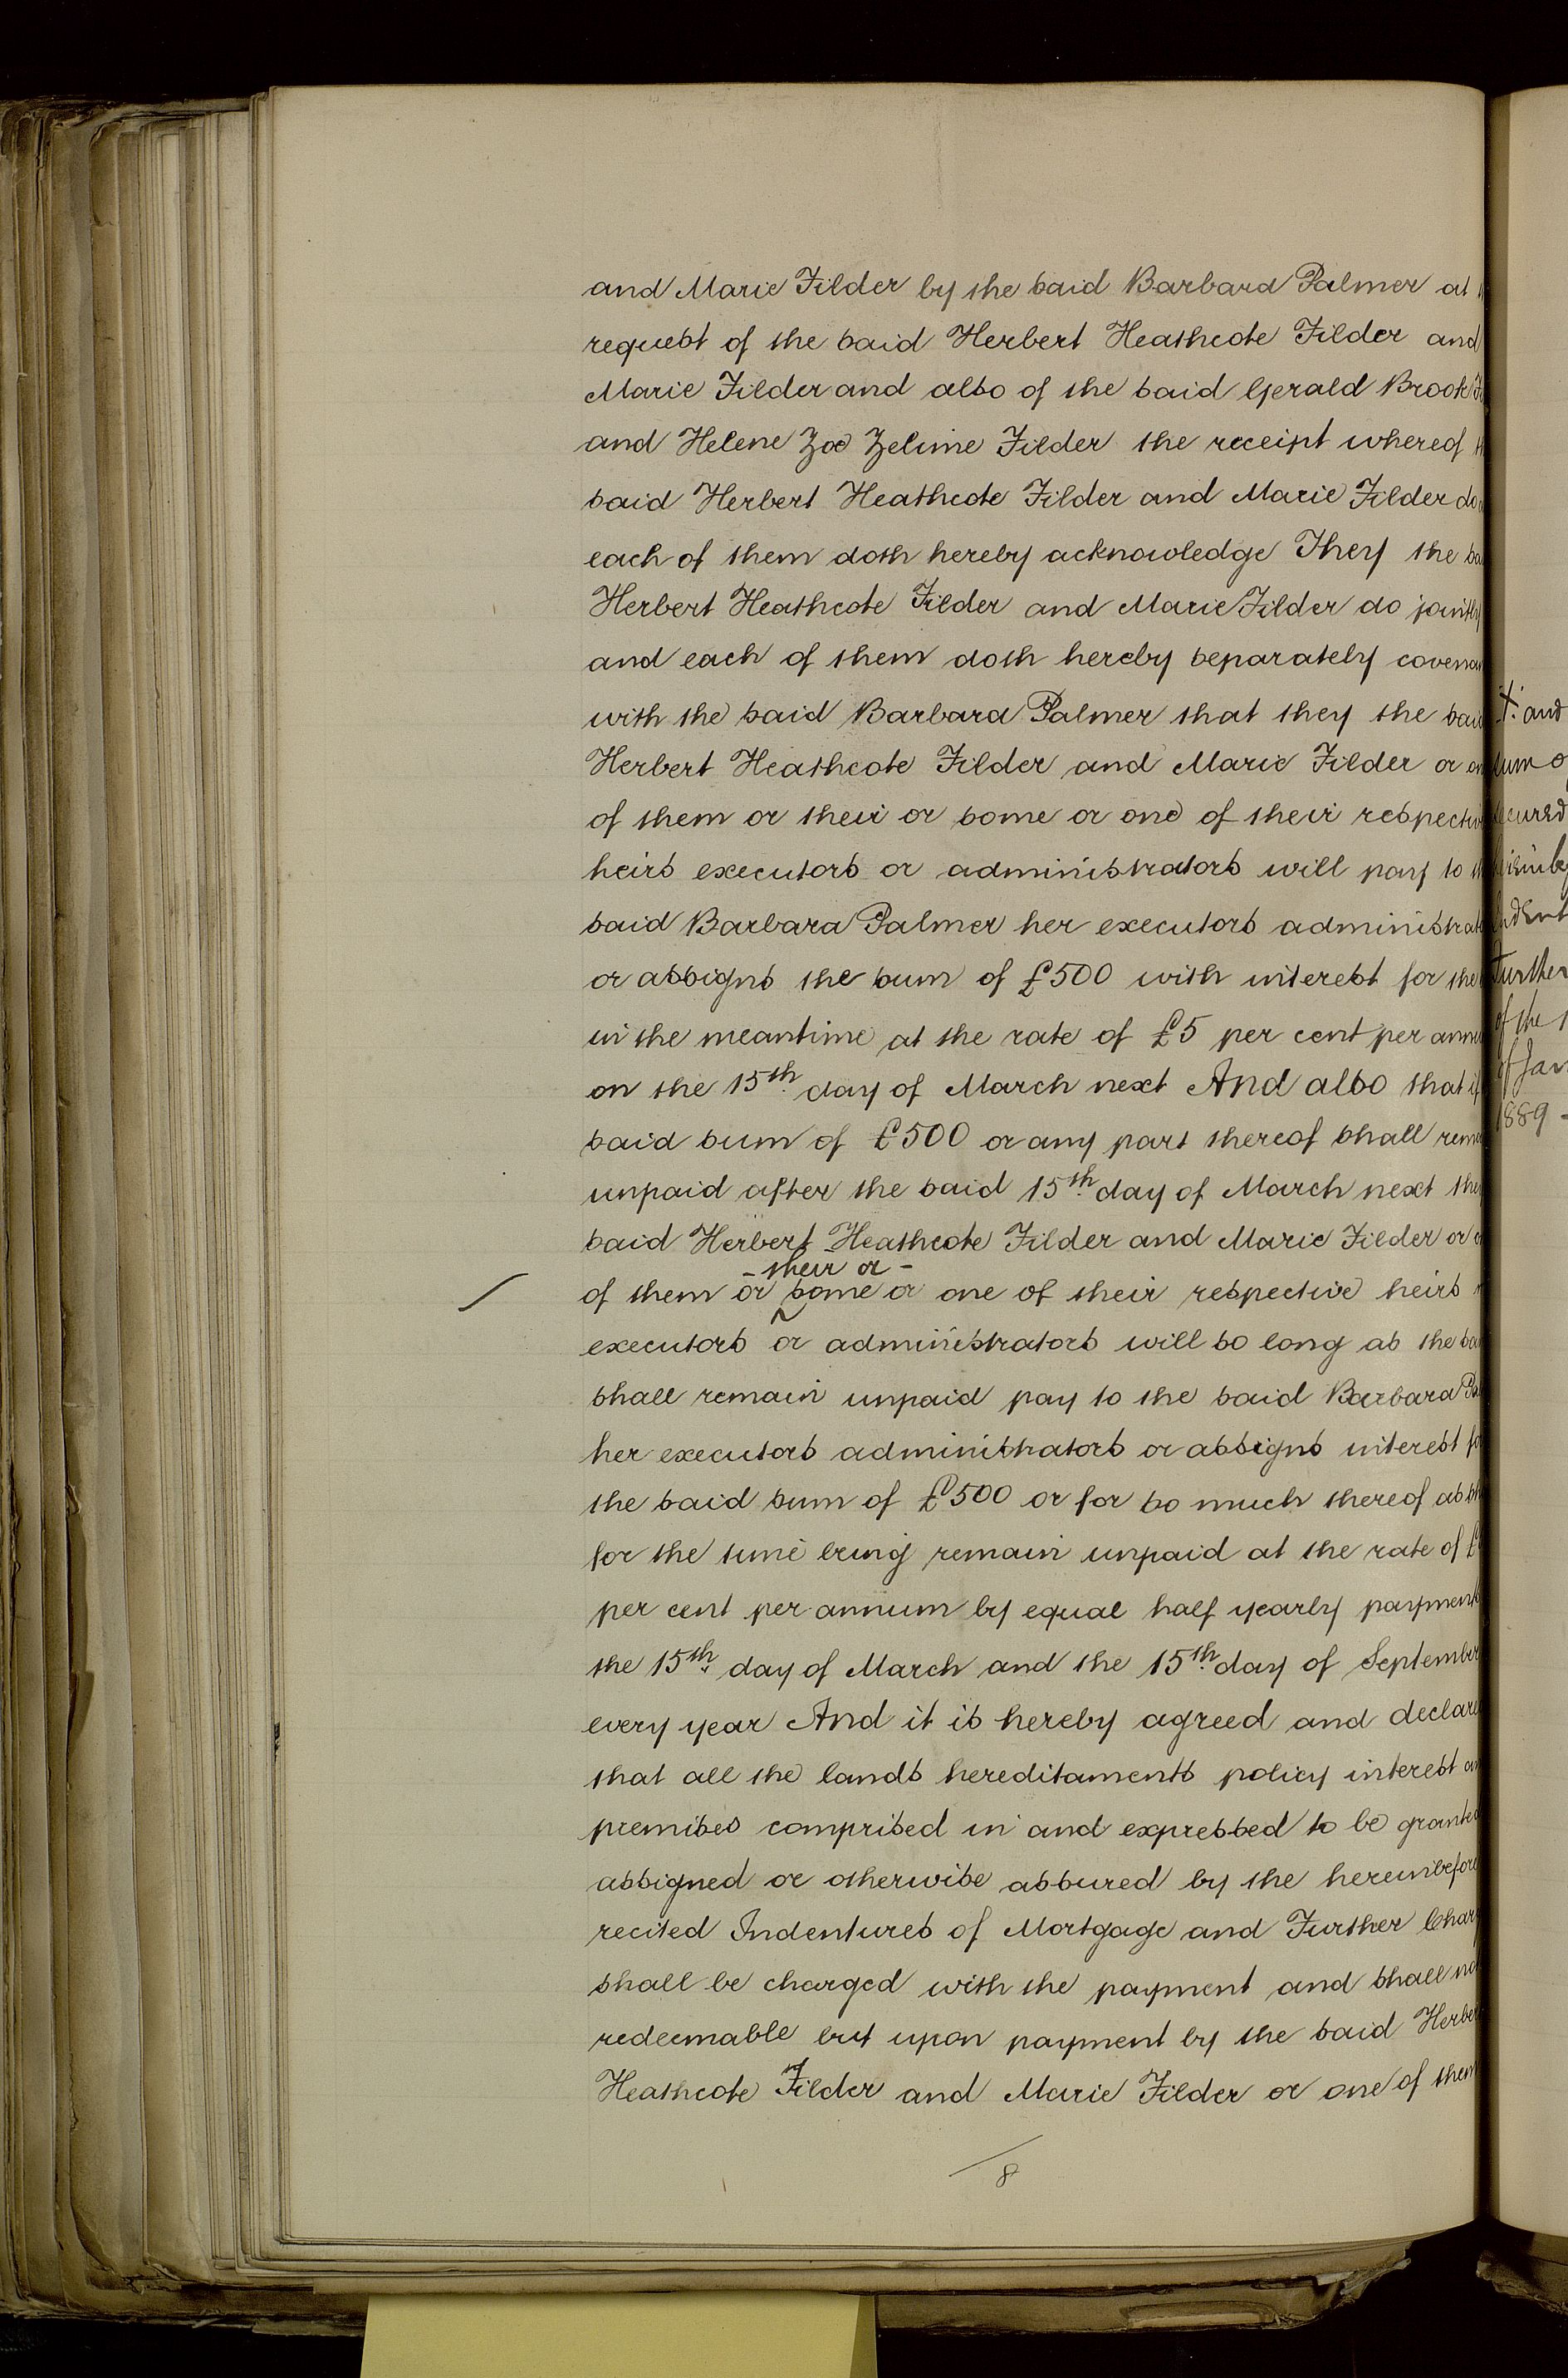 and Marie Filder by the said Barbara Palmer at
request of the said Herbert Heathcote Filder and
Marie Filder and also of the said Gerald Brook
and Helene Zoe Zelime Filder the receipt whereof
said Herbert Heathcote Filder and Marie Filder do
each of them doth hereby acknowledge They the
Herbert Heathcote Filder and Marie Filder do jointly
and each of them doth hereby separately covenan
with the said Barbara Palmer that they the said
Herbert Heathcote Filder and Marie Filder or on
of them or their or some or one of their respectiv
heirs executors or administrators will pay to th
said Barbara Palmer her executors administrat
or assigns the sum of £500 with interest for the
in the meantime at the rate of £5 per cent per annu
on the 15th day of March next And also that if
said sum of £500 or any part thereof shall rema
unpaid after the said 15th day of March next the
said Herbert Heathcote Filder and Marie Filder or o
- their or -
of them or some or one of their respective heirs
executors or administrators will so long as the sa
shall remain unpaid pay to the said Barbara Pa
her executors administrators or assigns interest fo
the said sum of £500 or for so much thereof as sh
for the time being remain unpaid at the rate of £
per cent per annum by equal half yearly payments
the 15th day of March and the 15th day of September
every year And it is hereby agreed and declared
that all the lands hereditaments policy interest an
premises comprised in and expressed to be granted
assigned or otherwise assured by the hereinbefore
recited Indentures of Mortgage and Further Char
shall be charged with the payment and shall no
redeemable but upon payment by the said Herber
Heathcote Filder and Marie Filder or one of them
8
X and
sum o
secured
hereinbe
Indent
Further
of the 1
of Jan
1889 -